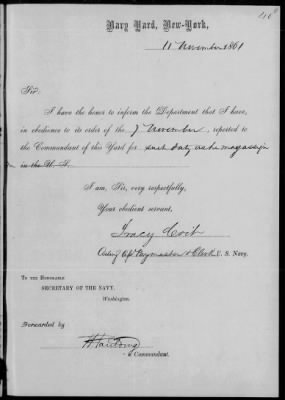 Navy Yard, New-York,
11 November 1861
Sir:
I have the honor to inform the Department that I have,
in obedience to its order of the 7 November, reported to
the Commandant of this Yard for such duty as he may assign
in the U. S.
I am, Sir, very respectfully,
Your obedient servant,
Tracy Coit
Acting Paymaster & Clerk U. S. Navy.
To the Honorable
SECRETARY OF THE NAVY,
Washington.
Forwarded by
Commandant.